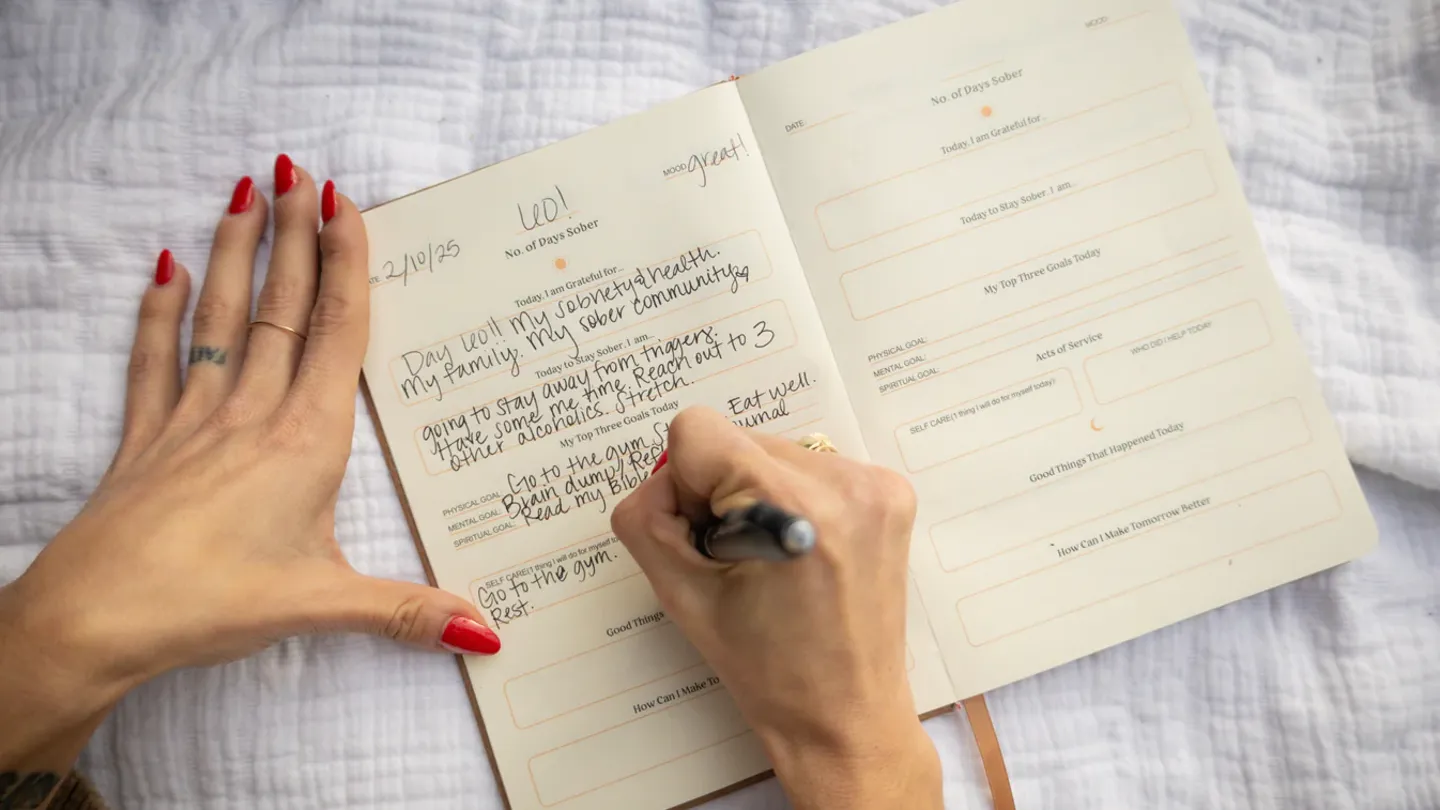 MOOD: great!
60!
ATE 2/10/25
No. of Days Sober
Today, I am Grateful for...
Day 60!! My sobriety & health.
My family. My sober community
Today to Stay Sober, I am...
going to stay away from triggers.
Have some me time. Reach out to 3
other alcoholics. Stretch.
My Top Three Goals Today
PHYSICAL GOAL: Go to the gym Eat well.
MENTAL GOAL: Brain dump
SPIRITUAL GOAL: Read my Bible
SELF CARE(1 thing I will do for myself
Go to the gym.
Rest.
Good Things
How Can I Make
MOOD:
No. of Days Sober
DATE:
Today, I am Grateful for...
Today to Stay Sober, I am...
My Top Three Goals Today
PHYSICAL GOAL:
MENTAL GOAL:
SPIRITUAL GOAL:
Acts of Service
SELF CARE(1 thing I will do for myself today)
WHO DID I HELP TODAY
Good Things That Happened Today
How Can I Make Tomorrow Better